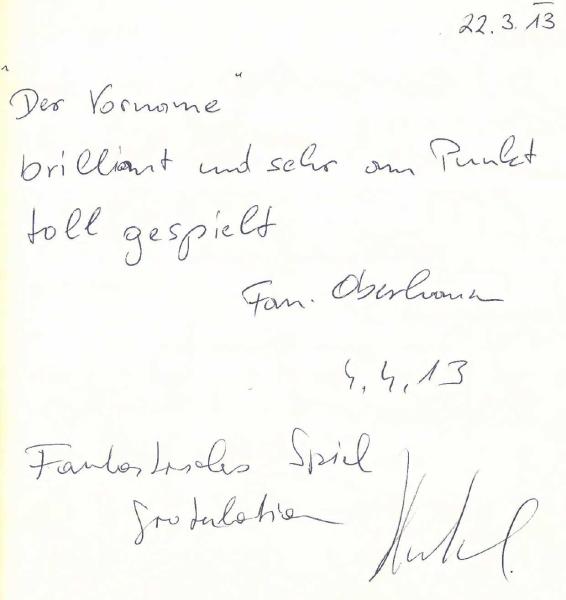 22.3.13
"Der Vorname"
brilliant und sehr am Punkt
toll gespielt
Fam.
4.4.13
Fantastisches Spiel
Gratulation